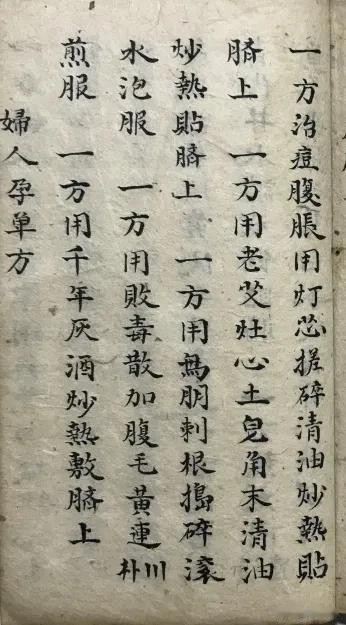 一方治痘腹脹用灯芯搓碎清油炒熱貼
臍上 一方用老艾灶心土皂角末清油
炒熱貼臍上 一方用鳥朋刺根搗碎滾
水泡服 一方用敗毒散加腹毛黃連川朴
煎服 一方用千年灰酒炒熱敷臍上
婦人孕單方